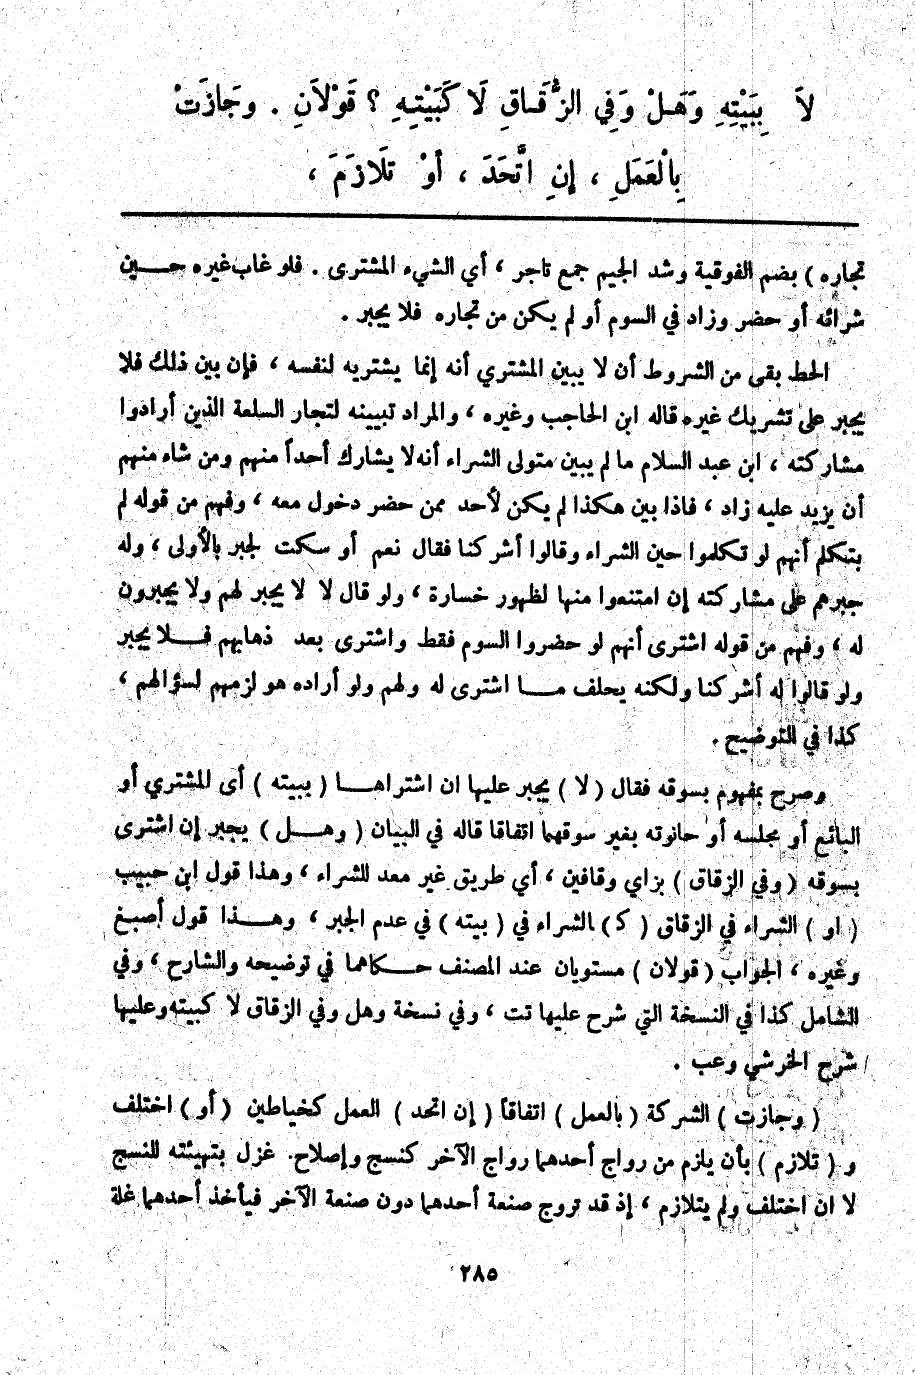 لاَ بِبَيْتِهِ وَهَلْ وَفِي الزُّقَاقِ لَا كَبَيْتِهِ ؟ قَوْلاَنِ . وجَازَتْ
بِالْعَمَلِ ، إنِ اتَّحَدَ ، أوْ تلَازَمَ ،
تجاره ) بضم الفوقية وشد الجيم جمع تاجر ، أي الشيء المشترى . فلو غاب غيره حــين
شرائه أو حضر وزاد في السوم أو لم يكن من تجاره فلا يجبر .
الحط بقى من الشروط أن لا يبين المشتري أنه إنما يشتريه لنفسه ، فإن بين ذلك فلا
يجبر على تشريك غيره قاله ابن الحاجب وغيره ، والمراد تبيينه لتجار السلعة الذين أرادوا
مشاركته ، ابن عبد السلام ما لم يبين متولى الشراء أنه لا يشارك أحداً منهم ومن شاء منهم
أن يزيد عليه زاد ، فاذا بين هكذا لم يكن لأحد ممن حضر دخول معه ، وفهم من قوله لم
يتكلم أنهم لو تكلموا حين الشراء وقالوا أشركنا فقال نعم أو سكت لجبر بالأولى ، وله
جبرهم على مشاركته إن امتنعوا منها لظهور خسارة ، ولو قال لا لا يجبر لهم ولا يجبرون
له ، وفهم من قوله اشترى أنهم لو حضروا السوم فقط واشترى بعد ذهابهم فــلا يجبر
ولو قالوا له أشركنا ولكنه يحلف مــا اشترى له ولهم ولو أراده هو لزمهم لسؤالهم ،
كذا في التوضيح .
وصرح بمفهوم بسوقه فقال ( لا ) يجبر عليها ان اشتراهــا ( ببيته ) أى المشتري أو
البائع أو مجلسه أو حانوته بغير سوقهما اتفاقا قاله في البيان ( وهــل ) يجبر إن اشترى
بسوقه ( وفي الزقاق ) بزاي وقافين ، أي طريق غير معد للشراء ، وهذا قول ابن حبيب
( او ) الشراء في الزقاق ( كـ ) الشراء في ( بيته ) في عدم الجبر ، وهــذا قول أصبغ
وغيره ، الجواب ( قولان ) مستويان عند المصنف حــكاهما في توضيحه والشارح ، وفي
الشامل كذا في النسخة التي شرح عليها تت ، وفي نسخة وهل وفي الزقاق لا كبيته وعليها
شرح الخرشي وعب .
( وجازت ) الشركة ( بالعمل ) اتفاقاً ( إن اتحد ) العمل كخياطين ( أو ) اختلف
و ( تلازم ) بأن يلزم من رواج أحدهما رواج الآخر كنسج وإصلاح غزل بتهيئته للنسج
لا ان اختلف ولم يتلازم ، إذ قد تروج صنعة أحدهما دون صنعة الآخر فيأخذ أحدهما غلة
٢٨٥